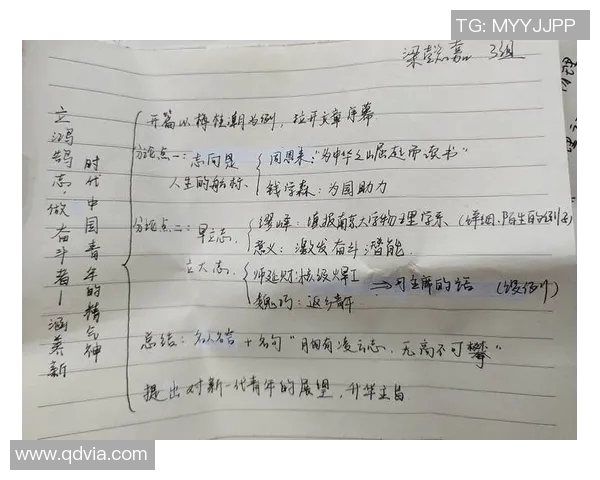 TG: MYYJJPP
梁懿嘉 3组
立鸿鹄志·做奋斗者—涵养新
时代中国青年的精气神
开篇以梅桂潮为例，拉开文章序幕
分论点一：志向是
人生的航标.
周恩来："为中华之崛起而读书"
钱学森：为国助力
分论点二：早立志.
缪峰：填报南京大学物理学系（详细、陌生的例子）
意义：激发奋斗潜能.
立大志.
师延财：核级焊工
魏巧：返乡青年
⇒习主席的话（段例）
总结：名人名言+名句"胸有凌云志，无高不可攀"
提出对新一代青年的展望，升华主旨.
www.qdvia.com